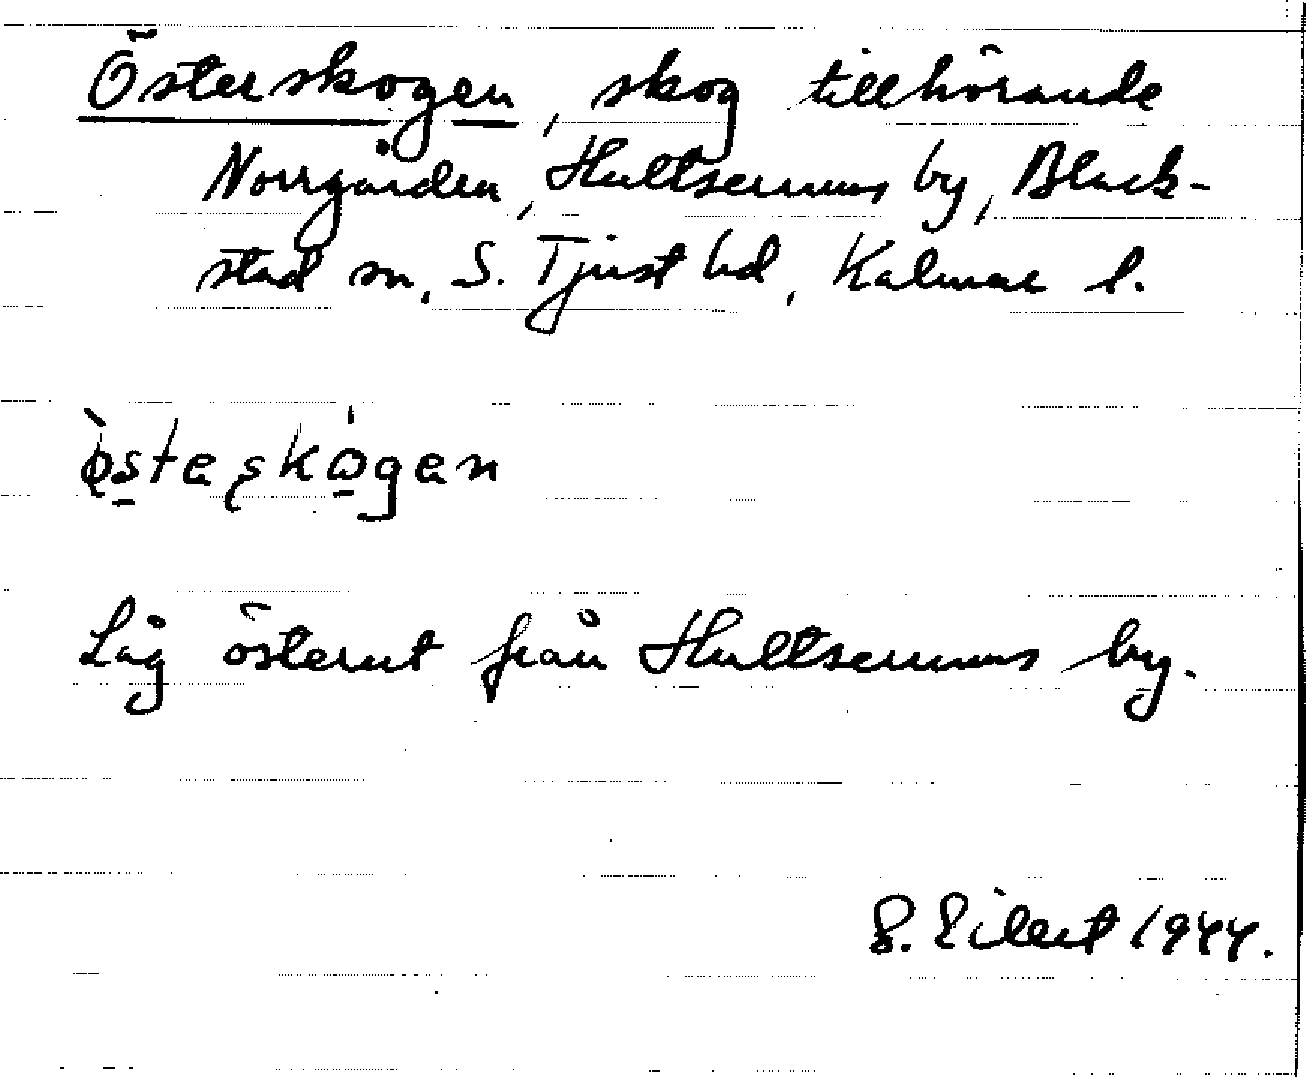 Österskogen, skog tillhörande
Norrgården, Hultserums by, Black-
stad sn, S. Tjust hd, Kalmar l.
Låg österut från Hultserums by.
S. Eilert 1944.